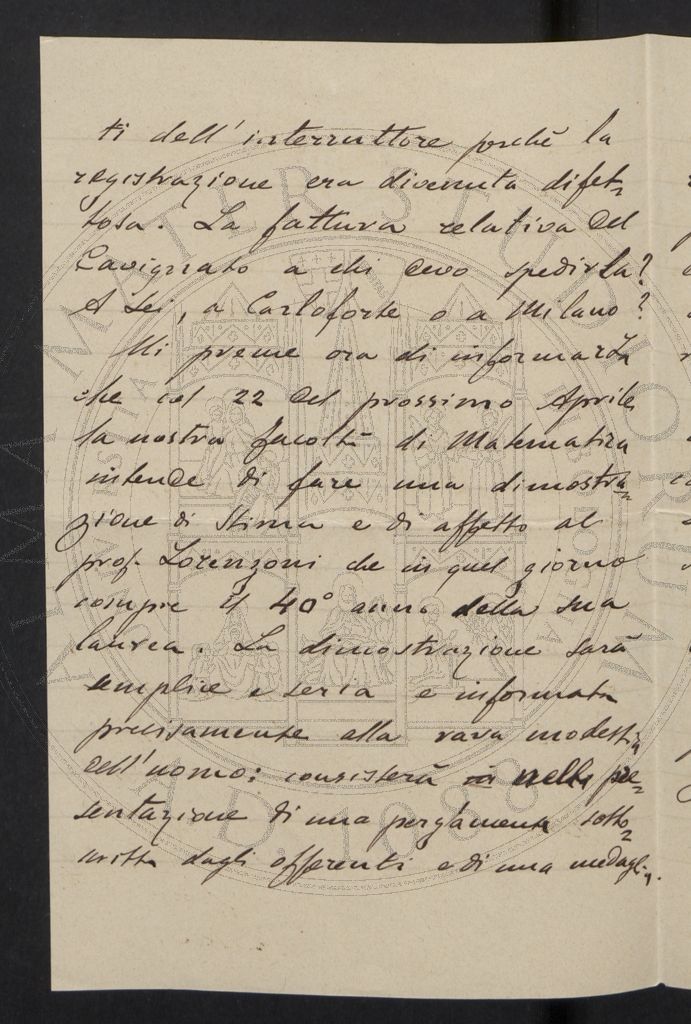 ti dell'interruttore perchè la
registrazione era divenuta difet=
tosa. La fattura relativa del
Cavignato a chi devo spedirla?
A Lei, a Carloforte o a Milano?
Mi preme ora di informarla
che col 22 del prossimo Aprile
la nostra facoltà di Matematica
intende di fare una dimostra=
zione di stima e di affetto al
prof. Lorenzoni che in quel giorno
compie il 40° anno della sua
laurea. La dimostrazione sarà
semplice e seria e informata
precisamente alla rara modestia
dell'uomo: consisterà in nella pre=
sentazione di una pergamena sotto=
scritta dagli offerenti e di una medaglia.